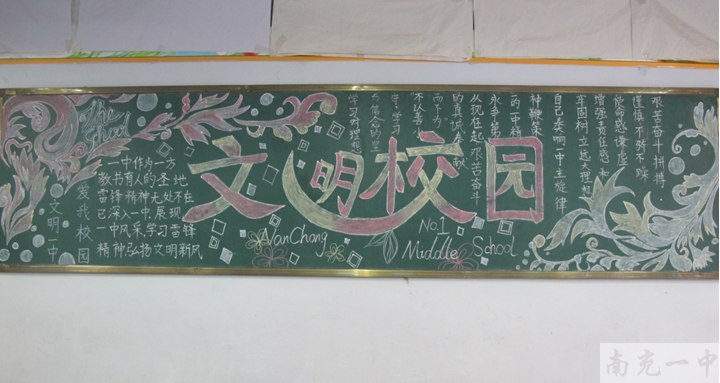 The School
文明一中
爱我校园
一中作为一方
教书育人的圣地
雷锋精神无处不在
已深入一中,展现
一中风采,学习雷锋
精神弘扬文明新风
文明校园
NanChong No.1 Middle School
艰苦奋斗拼搏
谨慎不骄不躁
使命感谦虚
增强责任感和
牢固树立远大理想
自己奏响一中主旋律
神鞭策
的一中精
永争第一
从我做起,艰苦奋斗
学习
学习雷锋
南充一中